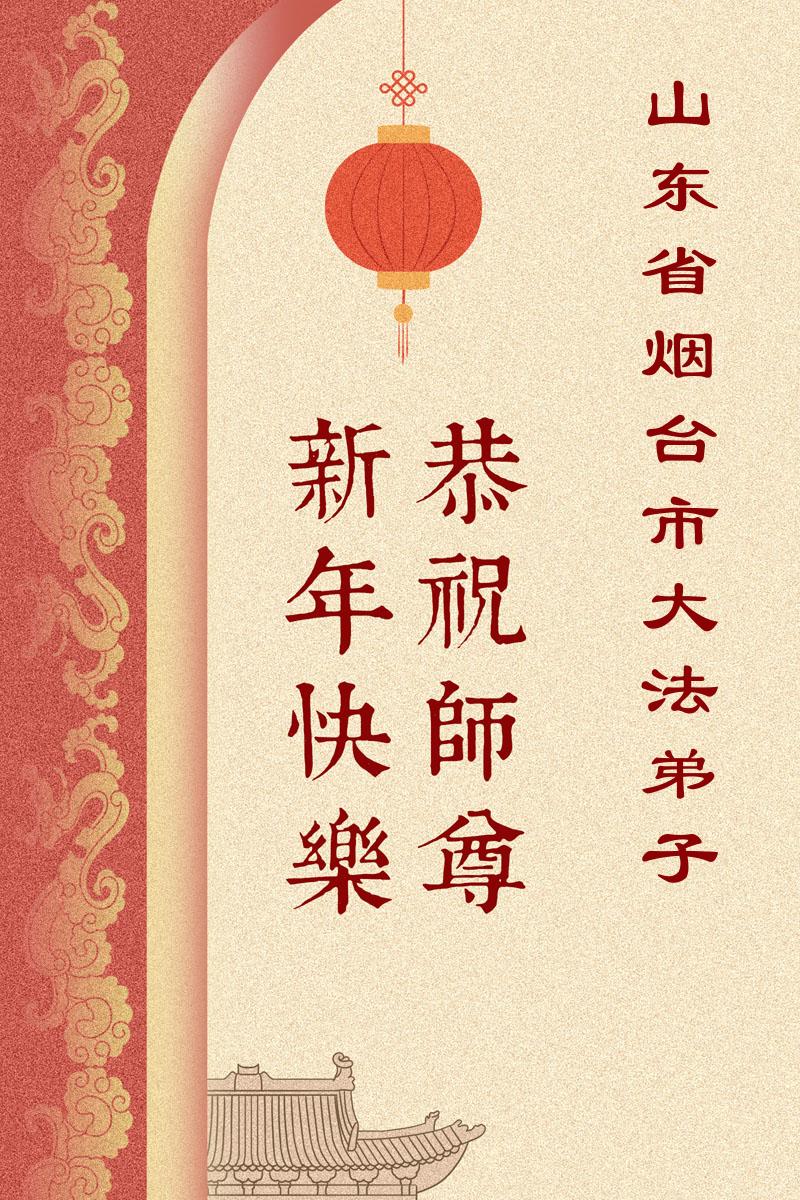 山东省烟台市大法弟子
恭祝師尊
新年快樂